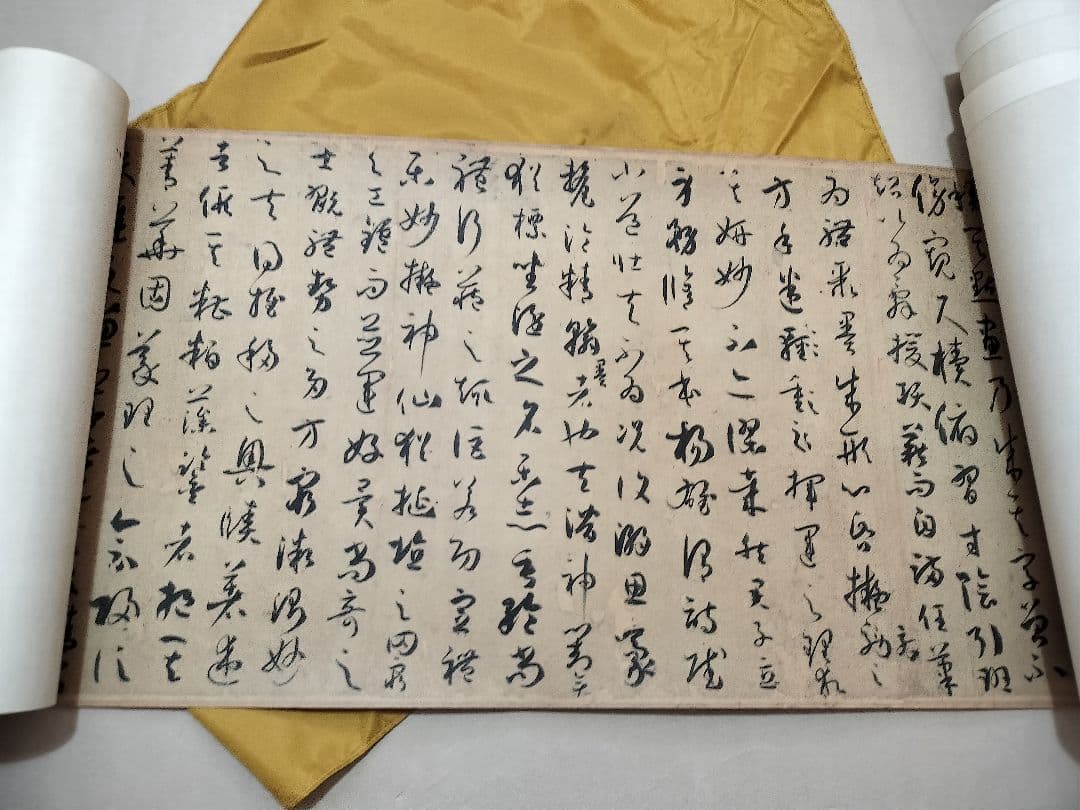 其點畫乃成其字曾不
傍窺尺牘俯習寸陰引班
超以為辭援項籍而自滿任筆
為體聚墨成形心昏擬效之
方手迷揮運之理求
其妍妙不亦謬哉然君子立
身務修其本楊雄謂詩賦
小道壯夫不為況復溺思豪
釐淪精翰墨者也夫潛神對弈
猶標坐隱之名樂志垂綸尚
體行藏之趣詎若功宣禮
樂妙擬神仙猶埏埴之罔窮
與工鑪而並運好異尚奇之
士翫體勢之多方窮微測妙
之夫得推移之奧賾著述
者假其糟粕藻鑒者挹其
菁華固義理之會歸信